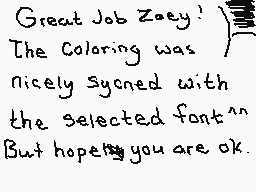 Great Job Zoey!
The coloring was
nicely sycned with
the selected font^^
But hope you are ok.